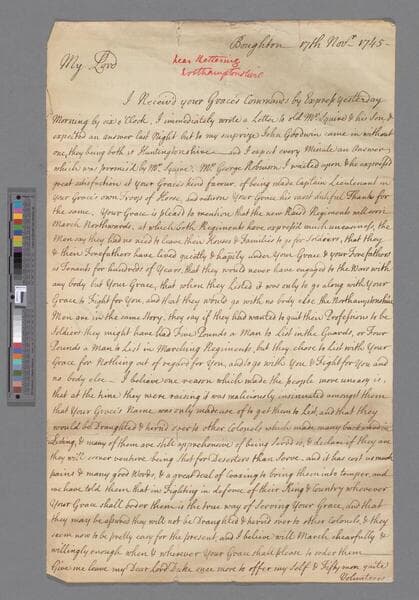 Boughton 17th Novr. 1745-
near Kettering
Northamptonshire
My Lord
I Receiv'd your Graces Commands by Express yesterday
Morning by six o'Clock, I immediately wrote a Letter to old Mr. Squire & his Son, &
expected an answer last Night but to my surprize John Goodwin came in without
one, they being both at Huntingtonshire and I expect every Minute an answer,
which was promis'd by Mr. Squire. Mr. George Robinson I waited upon & he express'd
great satisfaction at your Graces kind favour, of being made Captain Lieutenant in
your Grace's own Troop of Horse, and return Your Grace his most dutiful Thanks for
the same. Your Grace is pleas'd to mention that the new Rais'd Regiments will soon
March Northwards, at which both Regiments have express'd much uneasiness, the
Men say they had no need to leave their Homes & Families to go for Soldiers, that they
& their Forefathers have lived quietly & happily under Your Grace & your Forefathers
as Tenants for hundreds of Years, that they would never have engaged to the Wars with
any body but Your Grace, that when they Listed it was only to go along with Your
Grace to Fight for You, and that they would go with no body else, the Northamptonshire
Men are in the same Story, they say if they had wanted to quit their Professions to be
Soldiers they might have had Five Pounds a Man to List in the Guards, or Four
Pounds a Man to List in Marching Regiments, but they chose to List with Your
Grace for Nothing out of regard for You, and to go with You & Fight for You and
no body else. I believe one reason which made the people more uneasy is,
that at the time they were raising it was maliciously insinuated amongst them
that Your Grace's Name was only made use of to get them to List, and that they
would be Draughted & turned over to other Colonels which made many backward in
Listing, & many of them are still apprehensive of being served so, & declare if they are
they will sooner venture being Shot for Deserters than Serve. and it has cost us much
pains & many good Words, & a great deal of Coaxing to bring them into temper, and
we have told them that in Fighting in defence of their King & Country wherever
Your Grace shall order them is the true way of Serving Your Grace, and that
they may be assured they will not be Draughted & turned over to other Colonels, & they
seem now to be pretty easy for the present, and I believe will March chearfully &
willingly enough when & wherever Your Grace shall please to order them
Give me leave my Dear Lord Duke once more to offer my Self & Fifty men quite
Volunteers